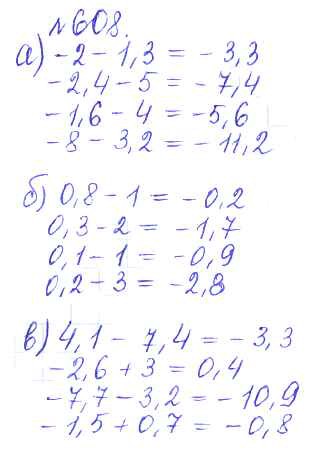 №608.
а) -2 - 1,3 = -3,3
-2,4 - 5 = -7,4
-1,6 - 4 = -5,6
-8 - 3,2 = -11,2
б) 0,8 - 1 = -0,2
0,3 - 2 = -1,7
0,1 - 1 = -0,9
0,2 - 3 = -2,8
в) 4,1 - 7,4 = -3,3
-2,6 + 3 = 0,4
-7,7 - 3,2 = -10,9
-1,5 + 0,7 = -0,8